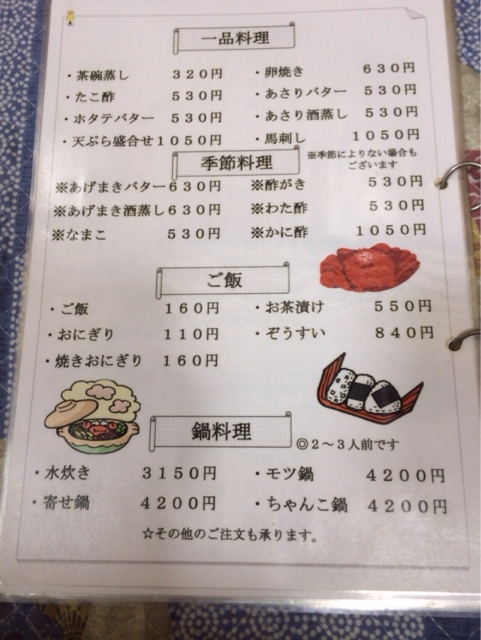 一品料理
・茶碗蒸し 320円 ・卵焼き 630円
・たこ酢 530円 ・あさりバター 530円
・ホタテバター 530円 ・あさり酒蒸し 530円
・天ぷら盛合せ1050円 ・馬刺し 1050円
季節料理
※季節によりない場合も
ございます
※あげまきバター630円 ※酢がき 530円
※あげまき酒蒸し630円 ※わた酢 530円
※なまこ 530円 ※かに酢 1050円
ご飯
・ご飯 160円 ・お茶漬け 550円
・おにぎり 110円 ・ぞうすい 840円
・焼きおにぎり 160円
鍋料理
◎2～3人前です
・水炊き 3150円 ・モツ鍋 4200円
・寄せ鍋 4200円 ・ちゃんこ鍋 4200円
☆その他のご注文も承ります。